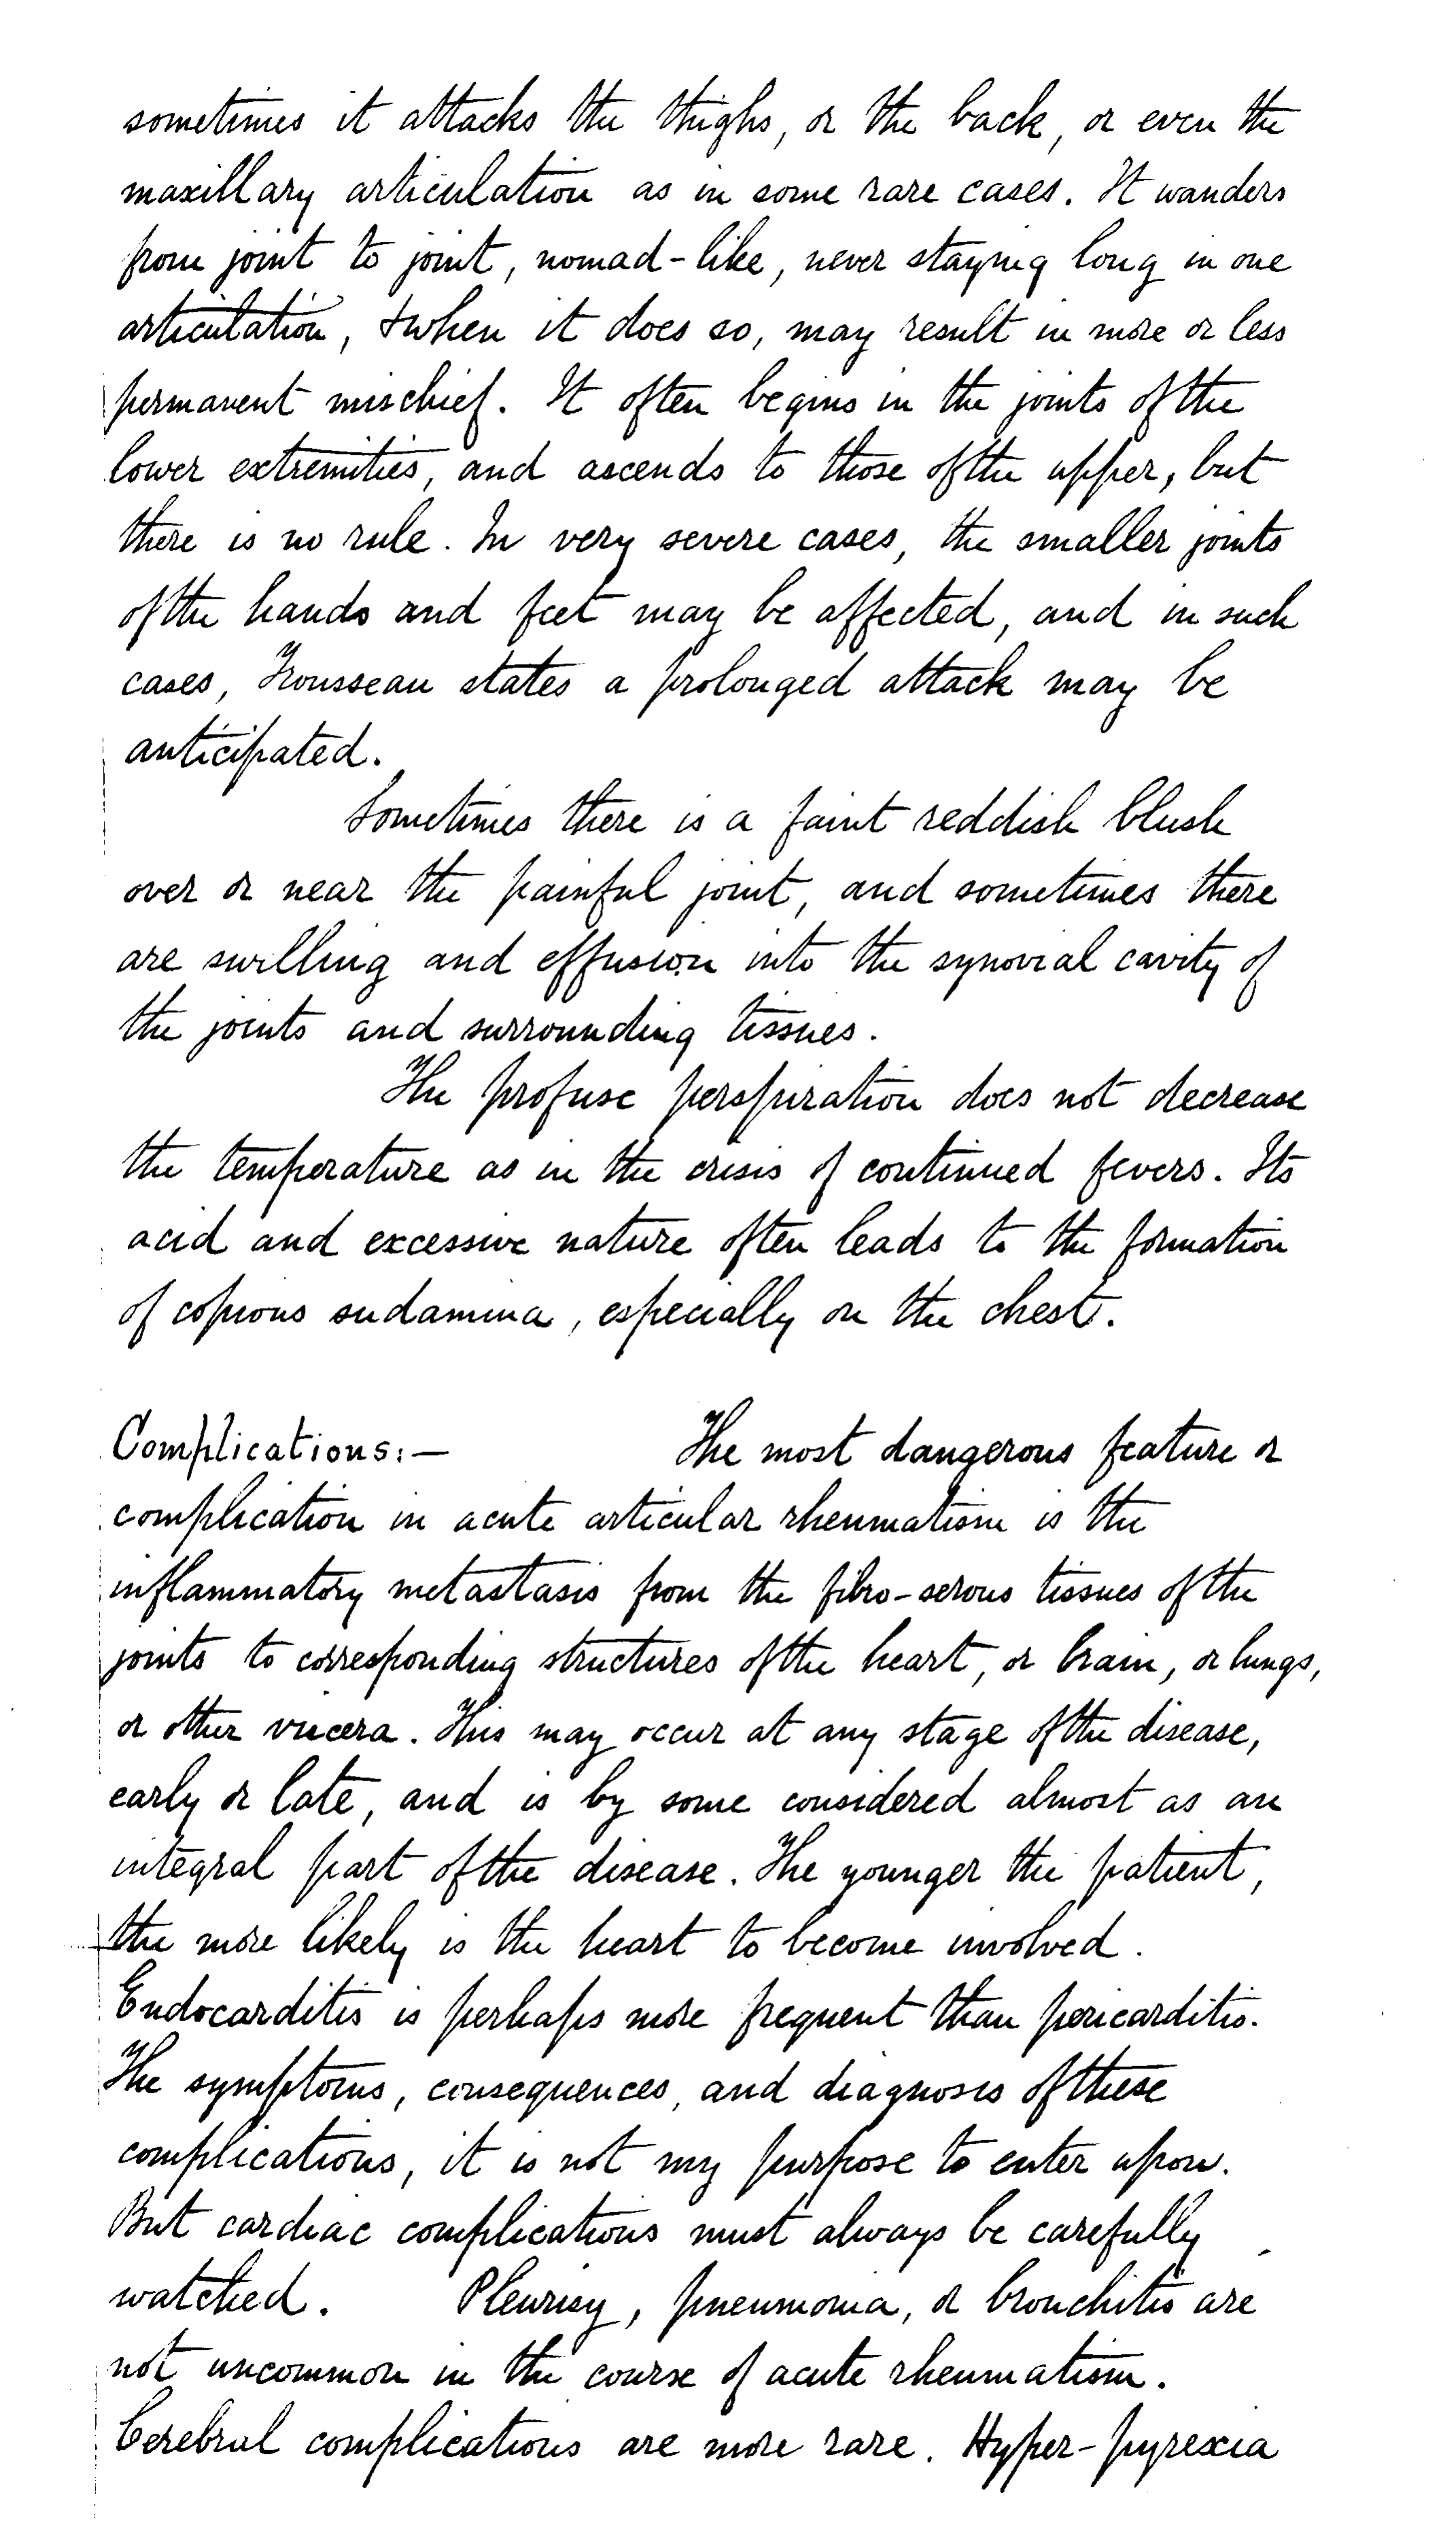 sometimes it attacks the thighs, or the back, or even the
maxillary articulation as in some rare cases. It wanders
from joint to joint, nomad-like, never staying long in one
articulation, & when it does so, may result in more or less
permanent mischief. It often begins in the joints of the
lower extremities, and ascends to those of the upper, but
there is no rule. In very severe cases, the smaller joints
of the hands and feet may be affected, and in such
cases, Trousseau states a prolonged attack may be
anticipated.
Sometimes there is a faint reddish blush
over or near the painful joint, and sometimes there
are swelling and effusion into the synovial cavity of
the joints and surrounding tissues.
The profuse perspiration does not decrease
the temperature as in the crisis of continued fevers. Its
acid and excessive nature often leads to the formation
of copious sudamina, especially on the chest.
Complications:— The most dangerous feature or
complication in acute articular rheumatism is the
inflammatory metastasis from the fibro-serous tissues of the
joints to corresponding structures of the heart, or brain, or lungs,
or other viscera. This may occur at any stage of the disease,
early or late, and is by some considered almost as an
integral part of the disease. The younger the patient,
the more likely is the heart to become involved.
Endocarditis is perhaps more frequent than pericarditis.
The symptoms, consequences, and diagnosis of these
complications, it is not my purpose to enter upon.
But cardiac complications must always be carefully
watched. Pleurisy, pneumonia, or bronchitis are
not uncommon in the course of acute rheumatism.
Cerebral complications are more rare. Hyper-pyrexia